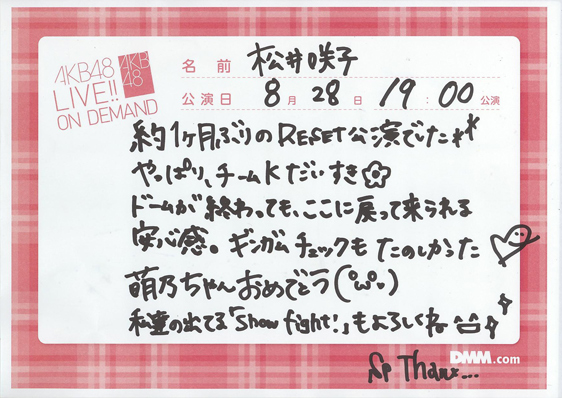 AKB48
LIVE!!
ON DEMAND
AKB
48
名前 松井咲子
公演日 8月28日 19:00公演
約1ヶ月ぶりのRESET公演でした**
やっぱり、チームKだいすき
ドームが終わっても、ここに戻って来られる
安心感。ギンガムチェックもたのしかった
萌乃ちゃんおめでとう(°ω°)
私達の出てる「Show fight!」もよろしくね
DMM.com